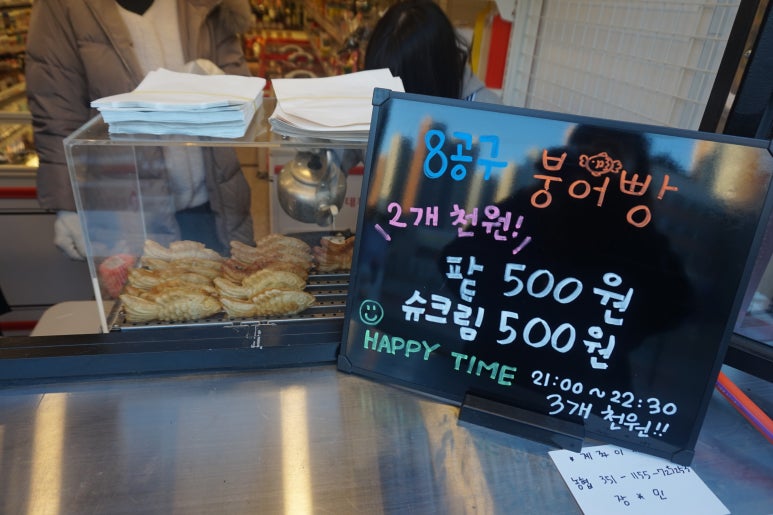 8공구 붕어빵
2개 천원!
팥 500원
슈크림 500원
HAPPY TIME 21:00~22:30
3개 천원!!
농협 351-1155-
장*인